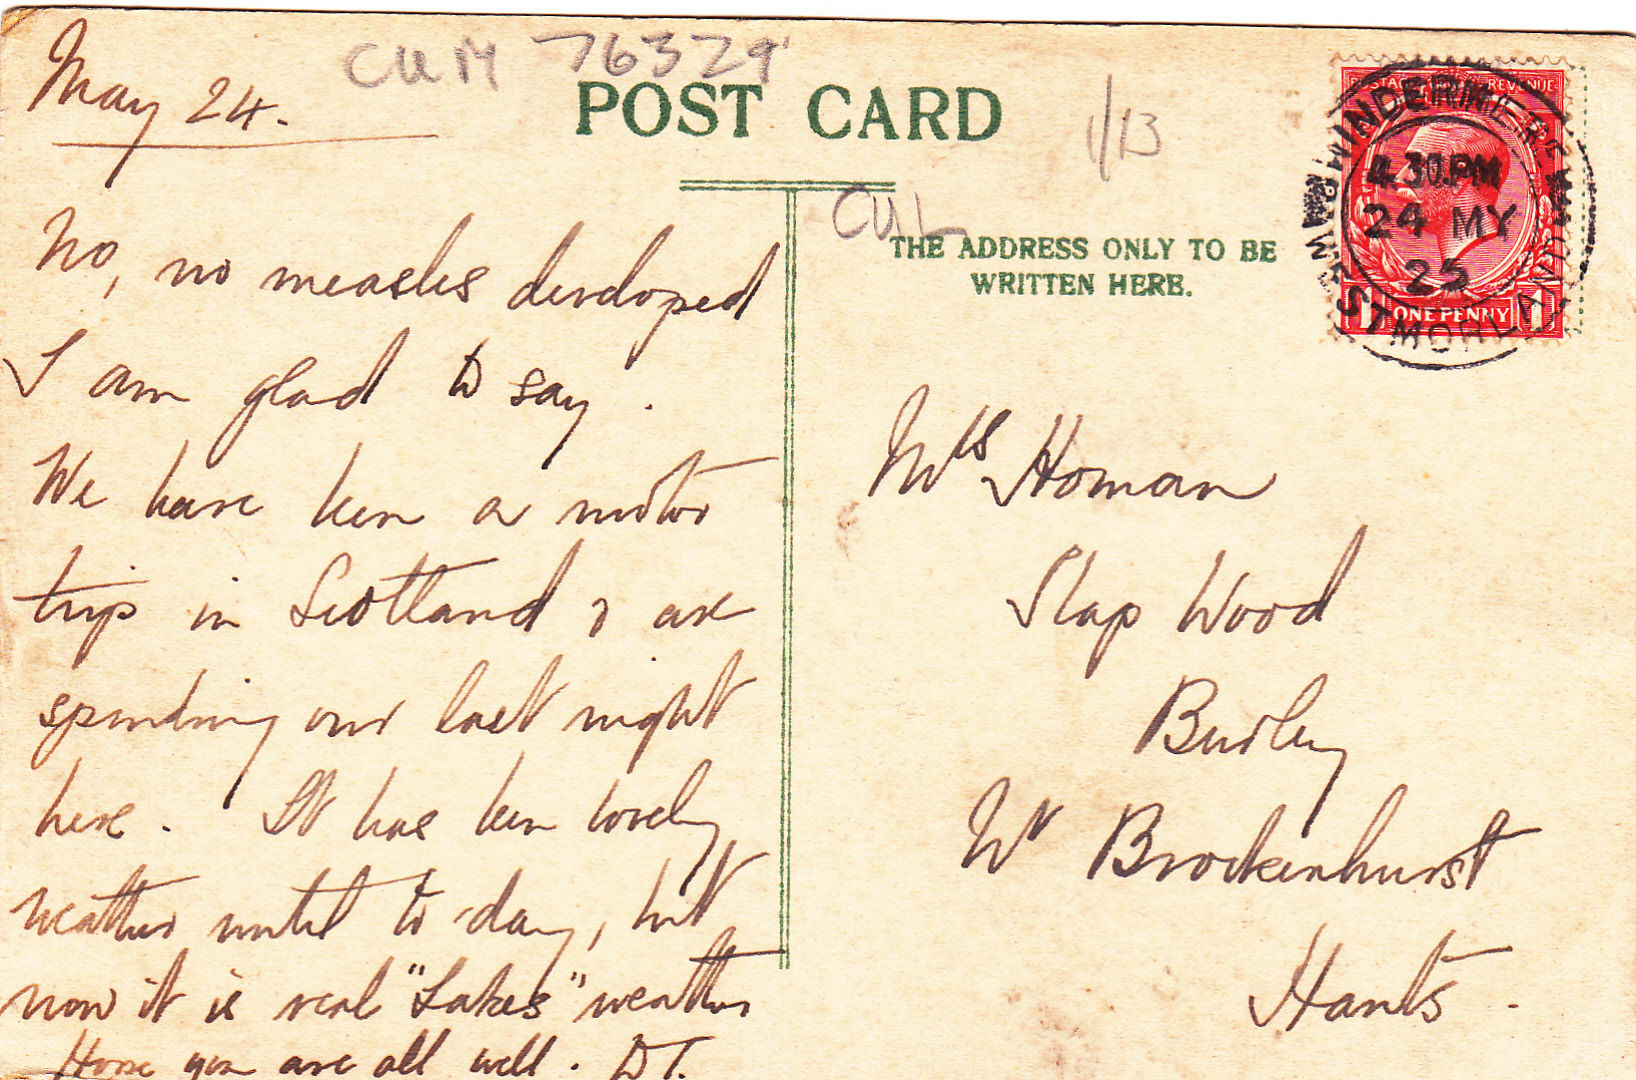 May 24.
CUM 76329
POST CARD
1/13
CUL
THE ADDRESS ONLY TO BE
WRITTEN HERE.
POSTAGE REVENUE
WINDERMERE
4.30.PM
24 MY
25
WESTMORLAND
1 ONE PENNY 1
No, no measles developed
I am glad to say.
We have been a motor
trip in Scotland & are
spending our last night
here. It has been lovely
weather until to-day, but
now it is real "Lakes" weather
Hope you are all well. DT.
Mrs Homan
Slap Wood
Burley
Nr Brockenhurst
Hants.